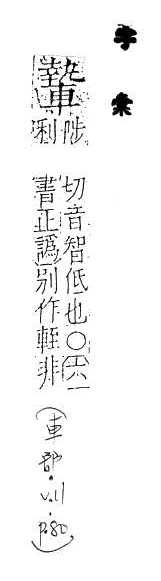 字彙
陟利
切音智低也○六
書正譌別作輊非
(車部·V.11·P.80)